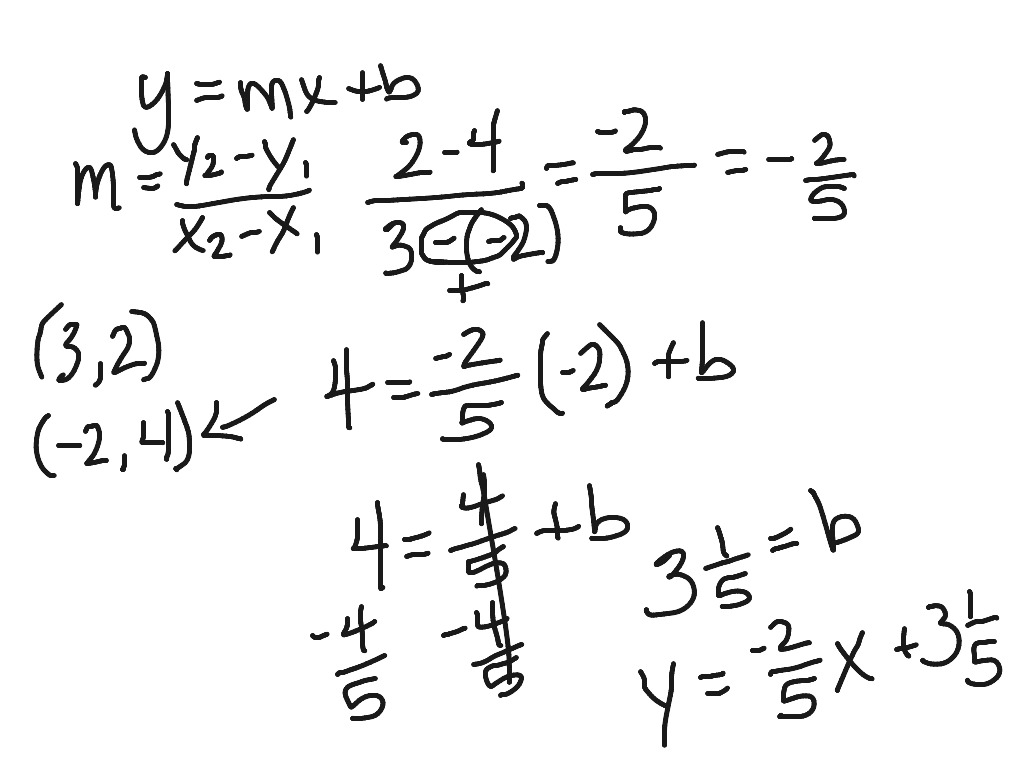 y = mx + b
m = y₂ - y₁ / x₂ - x₁   2 - 4 / 3 - (-2) = -2 / 5 = - 2/5
+
(3, 2)
(-2, 4) ←
4 = -2/5 (-2) + b
4 = 4/5 + b
- 4/5   - 4/5
3 1/5 = b
y = -2/5 x + 3 1/5